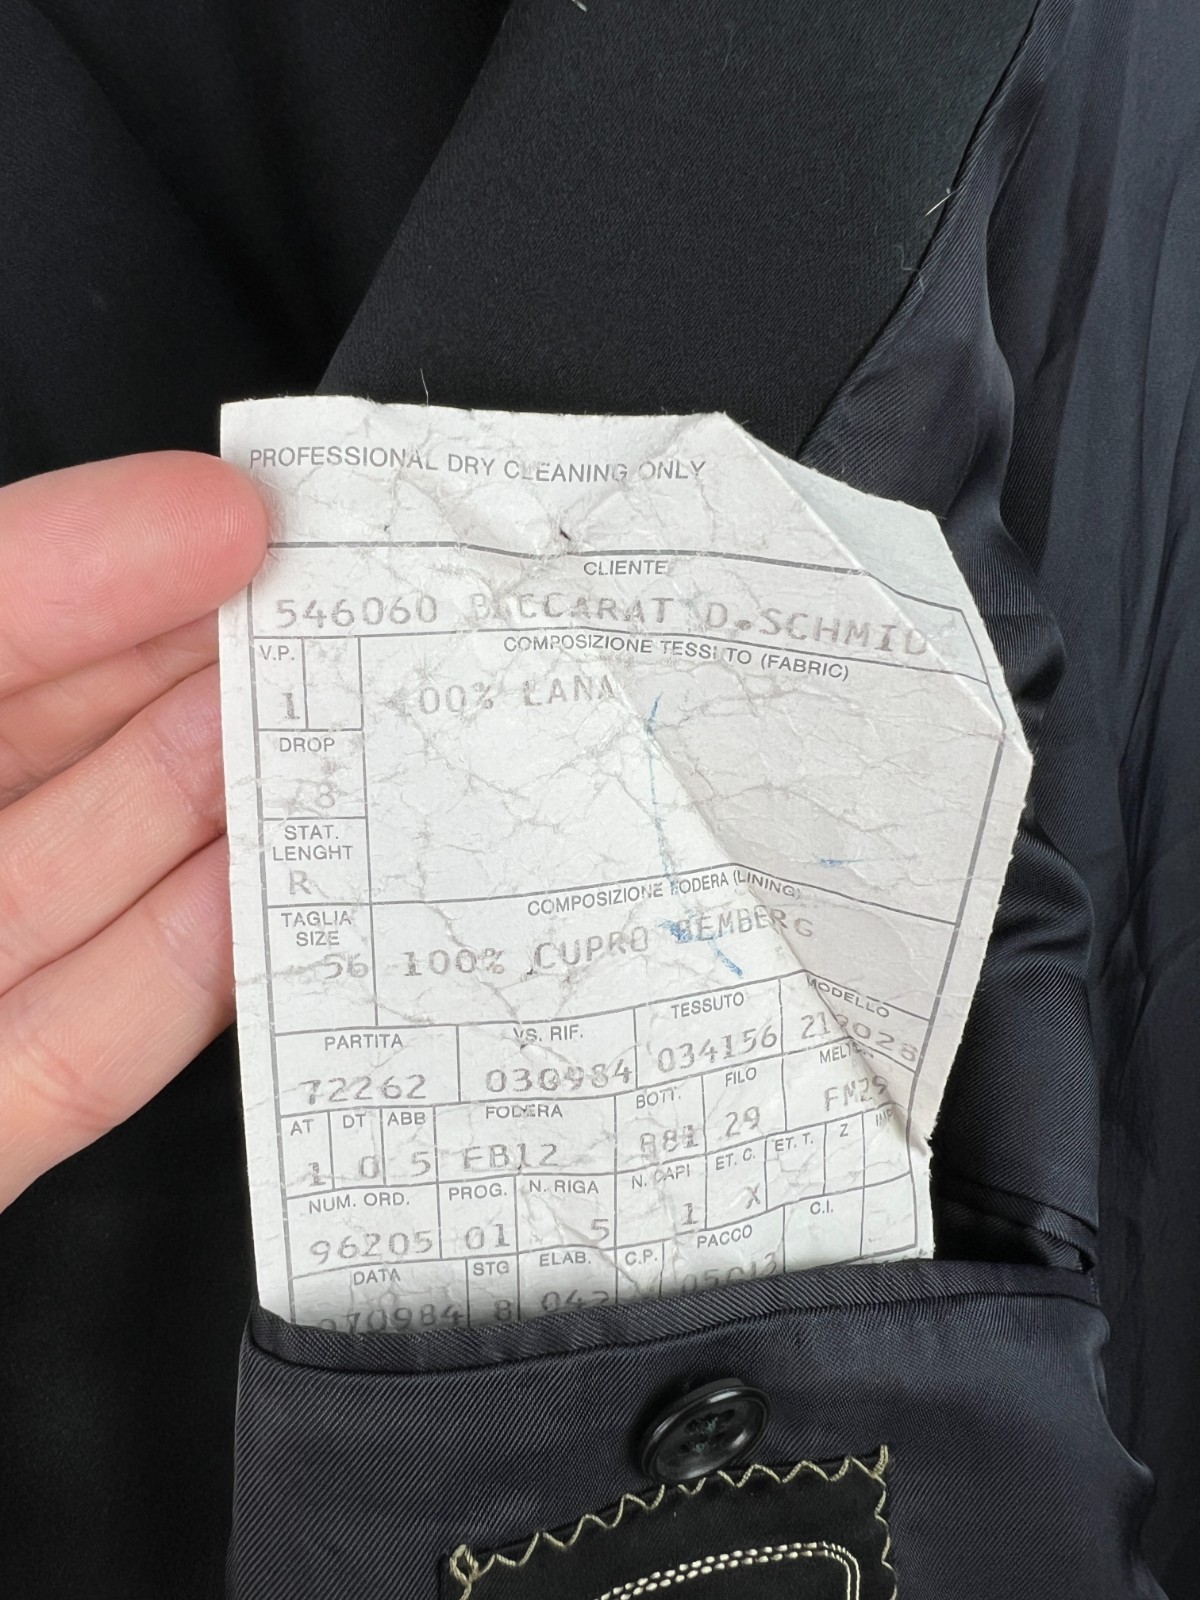 PROFESSIONAL DRY CLEANING ONLY
CLIENTE
546060 BACCARAT D.SCHMID
V.P.
COMPOSIZIONE TESSUTO (FABRIC)
1
100% LANA
DROP
8
STAT.
LENGHT
R
COMPOSIZIONE FODERA (LINING)
TAGLIA
SIZE
56
100% CUPRO BEMBERG
PARTITA VS. RIF. TESSUTO MODELLO
72262 030984 034156
AT DT ABB FODERA BOTT. FILO
1 0 5 FB12 881 29 FM29
NUM. ORD. PROG. N. RIGA N. CAPI ET. C. ET. T. Z
96205 01 5 1 X
DATA STG ELAB. C.P. PACCO C.I.
070984 8